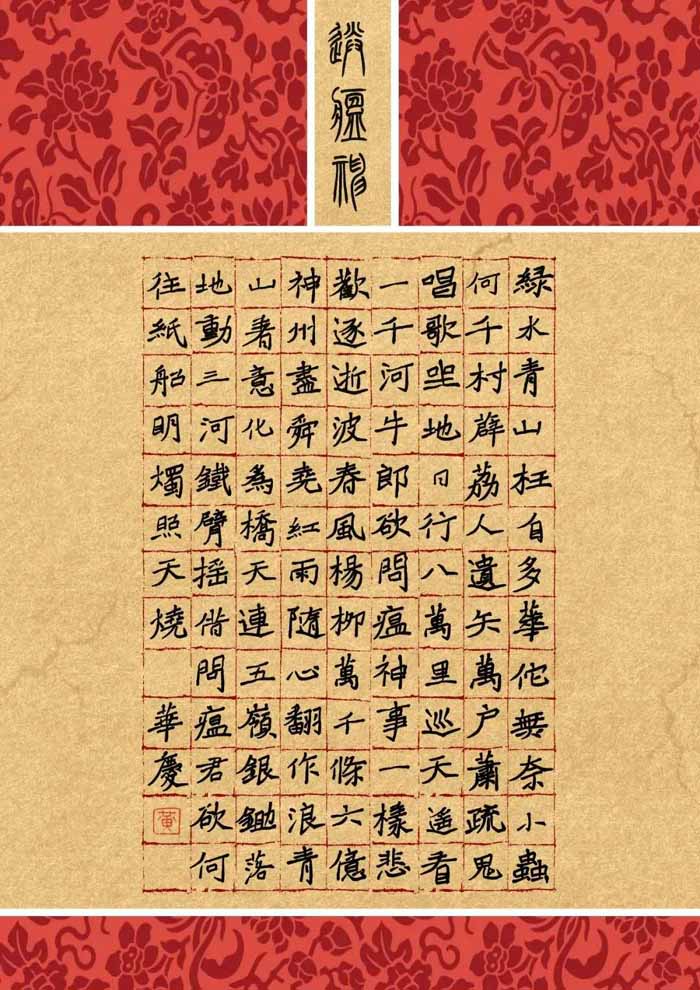 送瘟神
綠水青山枉自多華佗無奈小蟲
何千村薜荔人遺矢萬戶蕭疏鬼
唱歌坐地日行八萬里巡天遥看
一千河牛郎欲問瘟神事一樣悲
歡逐逝波春風楊柳萬千條六億
神州盡舜堯紅雨隨心翻作浪青
山着意化為橋天連五嶺銀鋤落
地動三河鐵臂摇借問瘟君欲何
往紙船明燭照天燒 華慶
黃